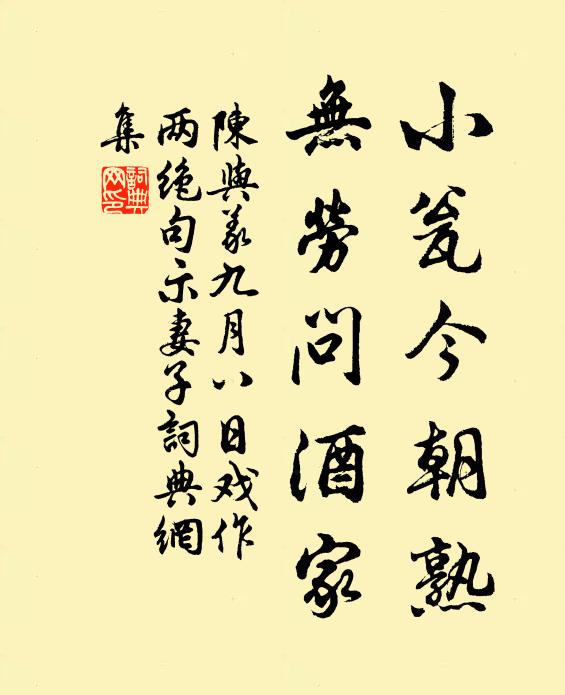 小瓮今朝熟
無勞問酒家
陳與義九月八日戏作
两绝句示妻子詞典網
集
詞典
网印